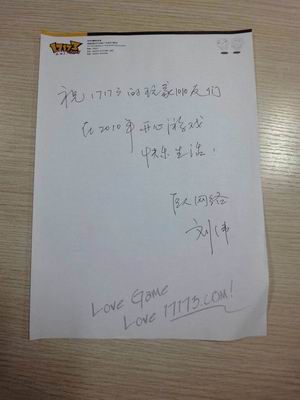 17173
祝17173的玩家朋友们
在2010年 开心游戏
快乐生活!
巨人网络
刘伟
Love Game
Love 17173.COM!